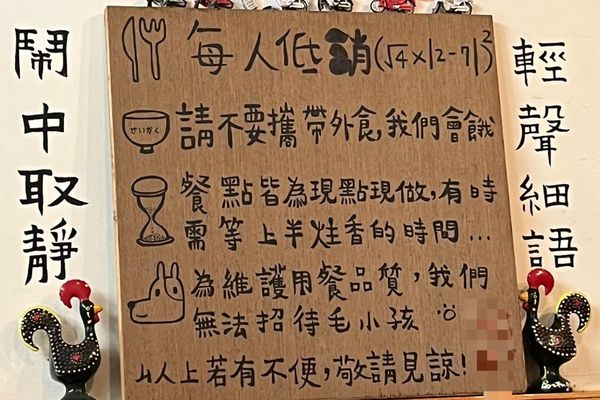 每人低銷(√4×|2-7|)²
せいかく
請不要攜帶外食,我們會餓
餐點皆為現點現做,有時
需等上半炷香的時間...
為維護用餐品質,我們
無法招待毛小孩
以上若有不便,敬請見諒!
鬧中取靜
輕聲細語